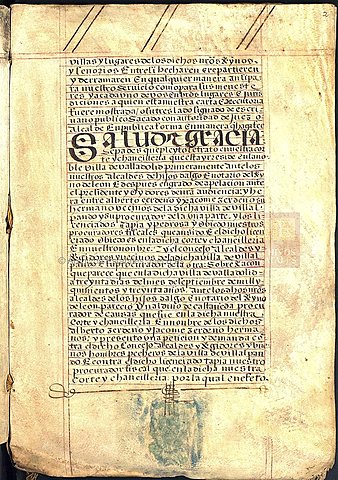 villas y lugares de los dichos n̄ros Reynos
y senorios Entre si hecharen e repartieren
y derramaren En qualquier manera ansi pa
ra nuestro servicio como para sus menestere
res y a cada uno de vos en v̄ros lugares E juris
diciones a quien esta nuestra carta Executoria
fuere mostrada / o su treslado signado de escri
uano publico Sacado con autoridad de juez o
alcalde En publica forma E manera que haga fee
SALUD E GRACIA
Sepades que pleyto se trato En nuestra cor
te y chancilleria que esta y reside en la no
ble villa de valladolid primeramente ante los
nuestros Alcaldes de hijos dalgo E notario del Rey
no de leon E despues En grado de apelacion ante
el presidente E oydores de n̄ra audiencia y hera
entre alberto zerdeno y Jacome zerdeno su
hermano vecinos de la dicha villa de villal
pando y su procurador de la una parte y los li
cenciados Tapia y pedrosa y obiedo nuestros
procuradores fiscales
cenciado obiedo es en la dicha corte y chancilleria
En nuestro nombre Y el concejo Alcaldes y
Regidores y vecinos de la dicha villa de villal
pando E su procurador de la otra Sobre Razon
que parece que en la dicha villa de valladolid
a treynta dias del mes de septiembre de mill y
quinientos y treynta años Ante los dichos nros
alcaldes de los hijos dalgo E notario del Reyno
de leon parecio Juan
procurador
de causas que fue en la dicha nuestra
Corte y chancilleria E en nombre de los dichos
alberto zerdeno y Jacome zerdeno herma
nos y presento una peticion y demanda contra
el dicho Concejo Alcaldes y Regidores y bue
nos hombres pecheros de la villa de villalpan
do E contra el dicho licenciado Tapia nuestro
procurador fiscal que en la dicha nuestra
corte y chancilleria por la qual en efeto